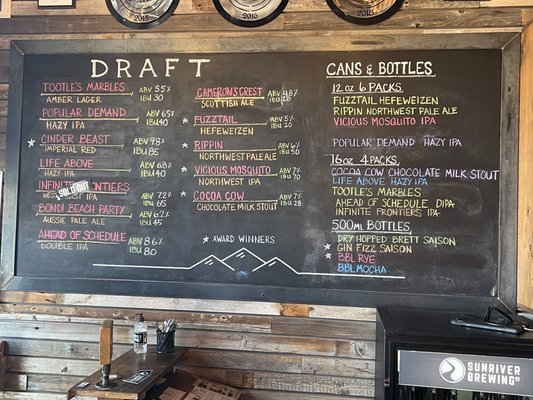 2015
2015
2015
DRAFT
TOOTLE'S MARBLES
AMBER LAGER
ABV 5.5%
IBU 30
POPULAR DEMAND
HAZY IPA
ABV 6.5%
IBU 40
CINDER BEAST
IMPERIAL RED
ABV 9.8%
IBU 85
LIFE ABOVE
HAZY IPA
ABV 6.8%
IBU 40
INFINITE FRONTIERS
WEST COAST IPA
SOLD OUT
ABV 7.2%
IBU 65
BONDI BEACH PARTY
AUSSIE PALE ALE
ABV 6.2%
IBU 45
AHEAD OF SCHEDULE
DOUBLE IPA
ABV 8.6%
IBU 80
CAMERON'S CREST
SCOTTISH ALE
ABV 4.8%
IBU 26
FUZZTAIL
HEFEWEIZEN
ABV 5%
IBU 20
RIPPIN
NORTHWEST PALE ALE
ABV 6%
IBU 50
VICIOUS MOSQUITO
NORTHWEST IPA
ABV 7%
IBU 70
COCOA COW
CHOCOLATE MILK STOUT
ABV 7%
IBU 28
AWARD WINNERS
CANS & BOTTLES
12 OZ 6 PACKS
FUZZTAIL HEFEWEIZEN
RIPPIN NORTHWEST PALE ALE
VICIOUS MOSQUITO IPA
POPULAR DEMAND HAZY IPA
16 OZ. 4 PACKS
COCOA COW CHOCOLATE MILK STOUT
LIFE ABOVE HAZY IPA
TOOTLE'S MARBLES
AHEAD OF SCHEDULE DIPA
INFINITE FRONTIERS IPA
500ML BOTTLES
DRY HOPPED BRETT SAISON
GIN FIZZ SAISON
BBL RYE
BBL MOCHA
SUNRIVER
BREWING CO